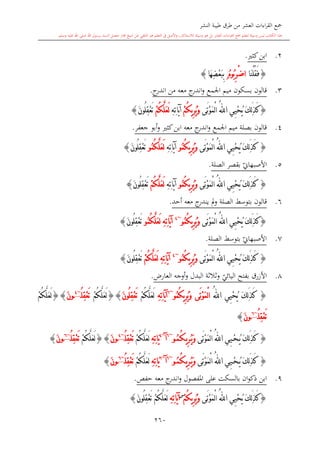 جمع القراءات العشر من طرق طيبة النشر
٢. ابن كثير.
﴿ فَقُلْنَا ٱضْرِبُوهُۥ بِبَعْضِهَا ﴾
٣. قالون بسكون ميم الجمع واندرج معه من اندرج.
﴿ كَذَٰلِكَ يُحْيِي ٱللَّهُ ٱلْمَوْتَىٰ وَيُرِيكُمْ ءَايَٰتِهِ لَعَلَّكُمْ تَعْقِلُونَ ﴾
٤. قالون بصلة ميم الجمع واندرج معه ابن كثير وأبو جعفر.
﴿ كَذَٰلِكَ يُحْيِي ٱللَّهُ ٱلْمَوْتَىٰ وَيُرِيكُمُو ءَايَٰتِهِ لَعَلَّكُمُو تَعْقِلُونَ ﴾
٥. الأصبهاني بقصر الصلة.
﴿ كَذَٰلِكَ يُحْيِي ٱللَّهُ ٱلْمَوْتَىٰ وَيُرِيكُمُو ءَايَٰتِهِ لَعَلَّكُمْ تَعْقِلُونَ ﴾
٦. قالون بتوسط الصلة ولم يندرج معه أحد.
﴿ كَذَٰلِكَ يُحْيِي ٱللَّهُ ٱلْمَوْتَىٰ وَيُرِيكُمُو ءَايَٰتِهِ لَعَلَّكُمُو تَعْقِلُونَ ﴾
٧. الأصبهاني بتوسط الصلة.
﴿ كَذَٰلِكَ يُحْيِي ٱللَّهُ ٱلْمَوْتَىٰ وَيُرِيكُمُو ءَايَٰتِهِ لَعَلَّكُمْ تَعْقِلُونَ ﴾
٨. الأزرق بفتح اليائي وثلاثة البدل وأوجه العارض.
﴿ كَذَٰلِكَ يُحْيِي ٱللَّهُ ٱلْمَوْتَىٰ وَيُرِيكُمُو ءَايَٰتِهِ لَعَلَّكُمْ تَعْقِلُونَ ﴾ ﴿ لَعَلَّكُمْ تَعْقِلُونَ ﴾ ﴿ لَعَلَّكُمْ
تَعْقِلُونَ ﴾
﴿ كَذَٰلِكَ يُحْيِي ٱللَّهُ ٱلْمَوْتَىٰ وَيُرِيكُمُو ءَايَٰتِهِ لَعَلَّكُمْ تَعْقِلُونَ ﴾ ﴿ لَعَلَّكُمْ تَعْقِلُونَ ﴾
﴿ كَذَٰلِكَ يُحْيِي ٱللَّهُ ٱلْمَوْتَىٰ وَيُرِيكُمُو ءَايَٰتِهِ لَعَلَّكُمْ تَعْقِلُونَ ﴾
٩. ابن ذكوان بالسكت على المفصول واندرج معه حفص.
﴿ كَذَٰلِكَ يُحْيِي ٱللَّهُ ٱلْمَوْتَىٰ وَيُرِيكُمْ ءَايَٰتِهِ لَعَلَّكُمْ تَعْقِلُونَ ﴾
-٢٦٠